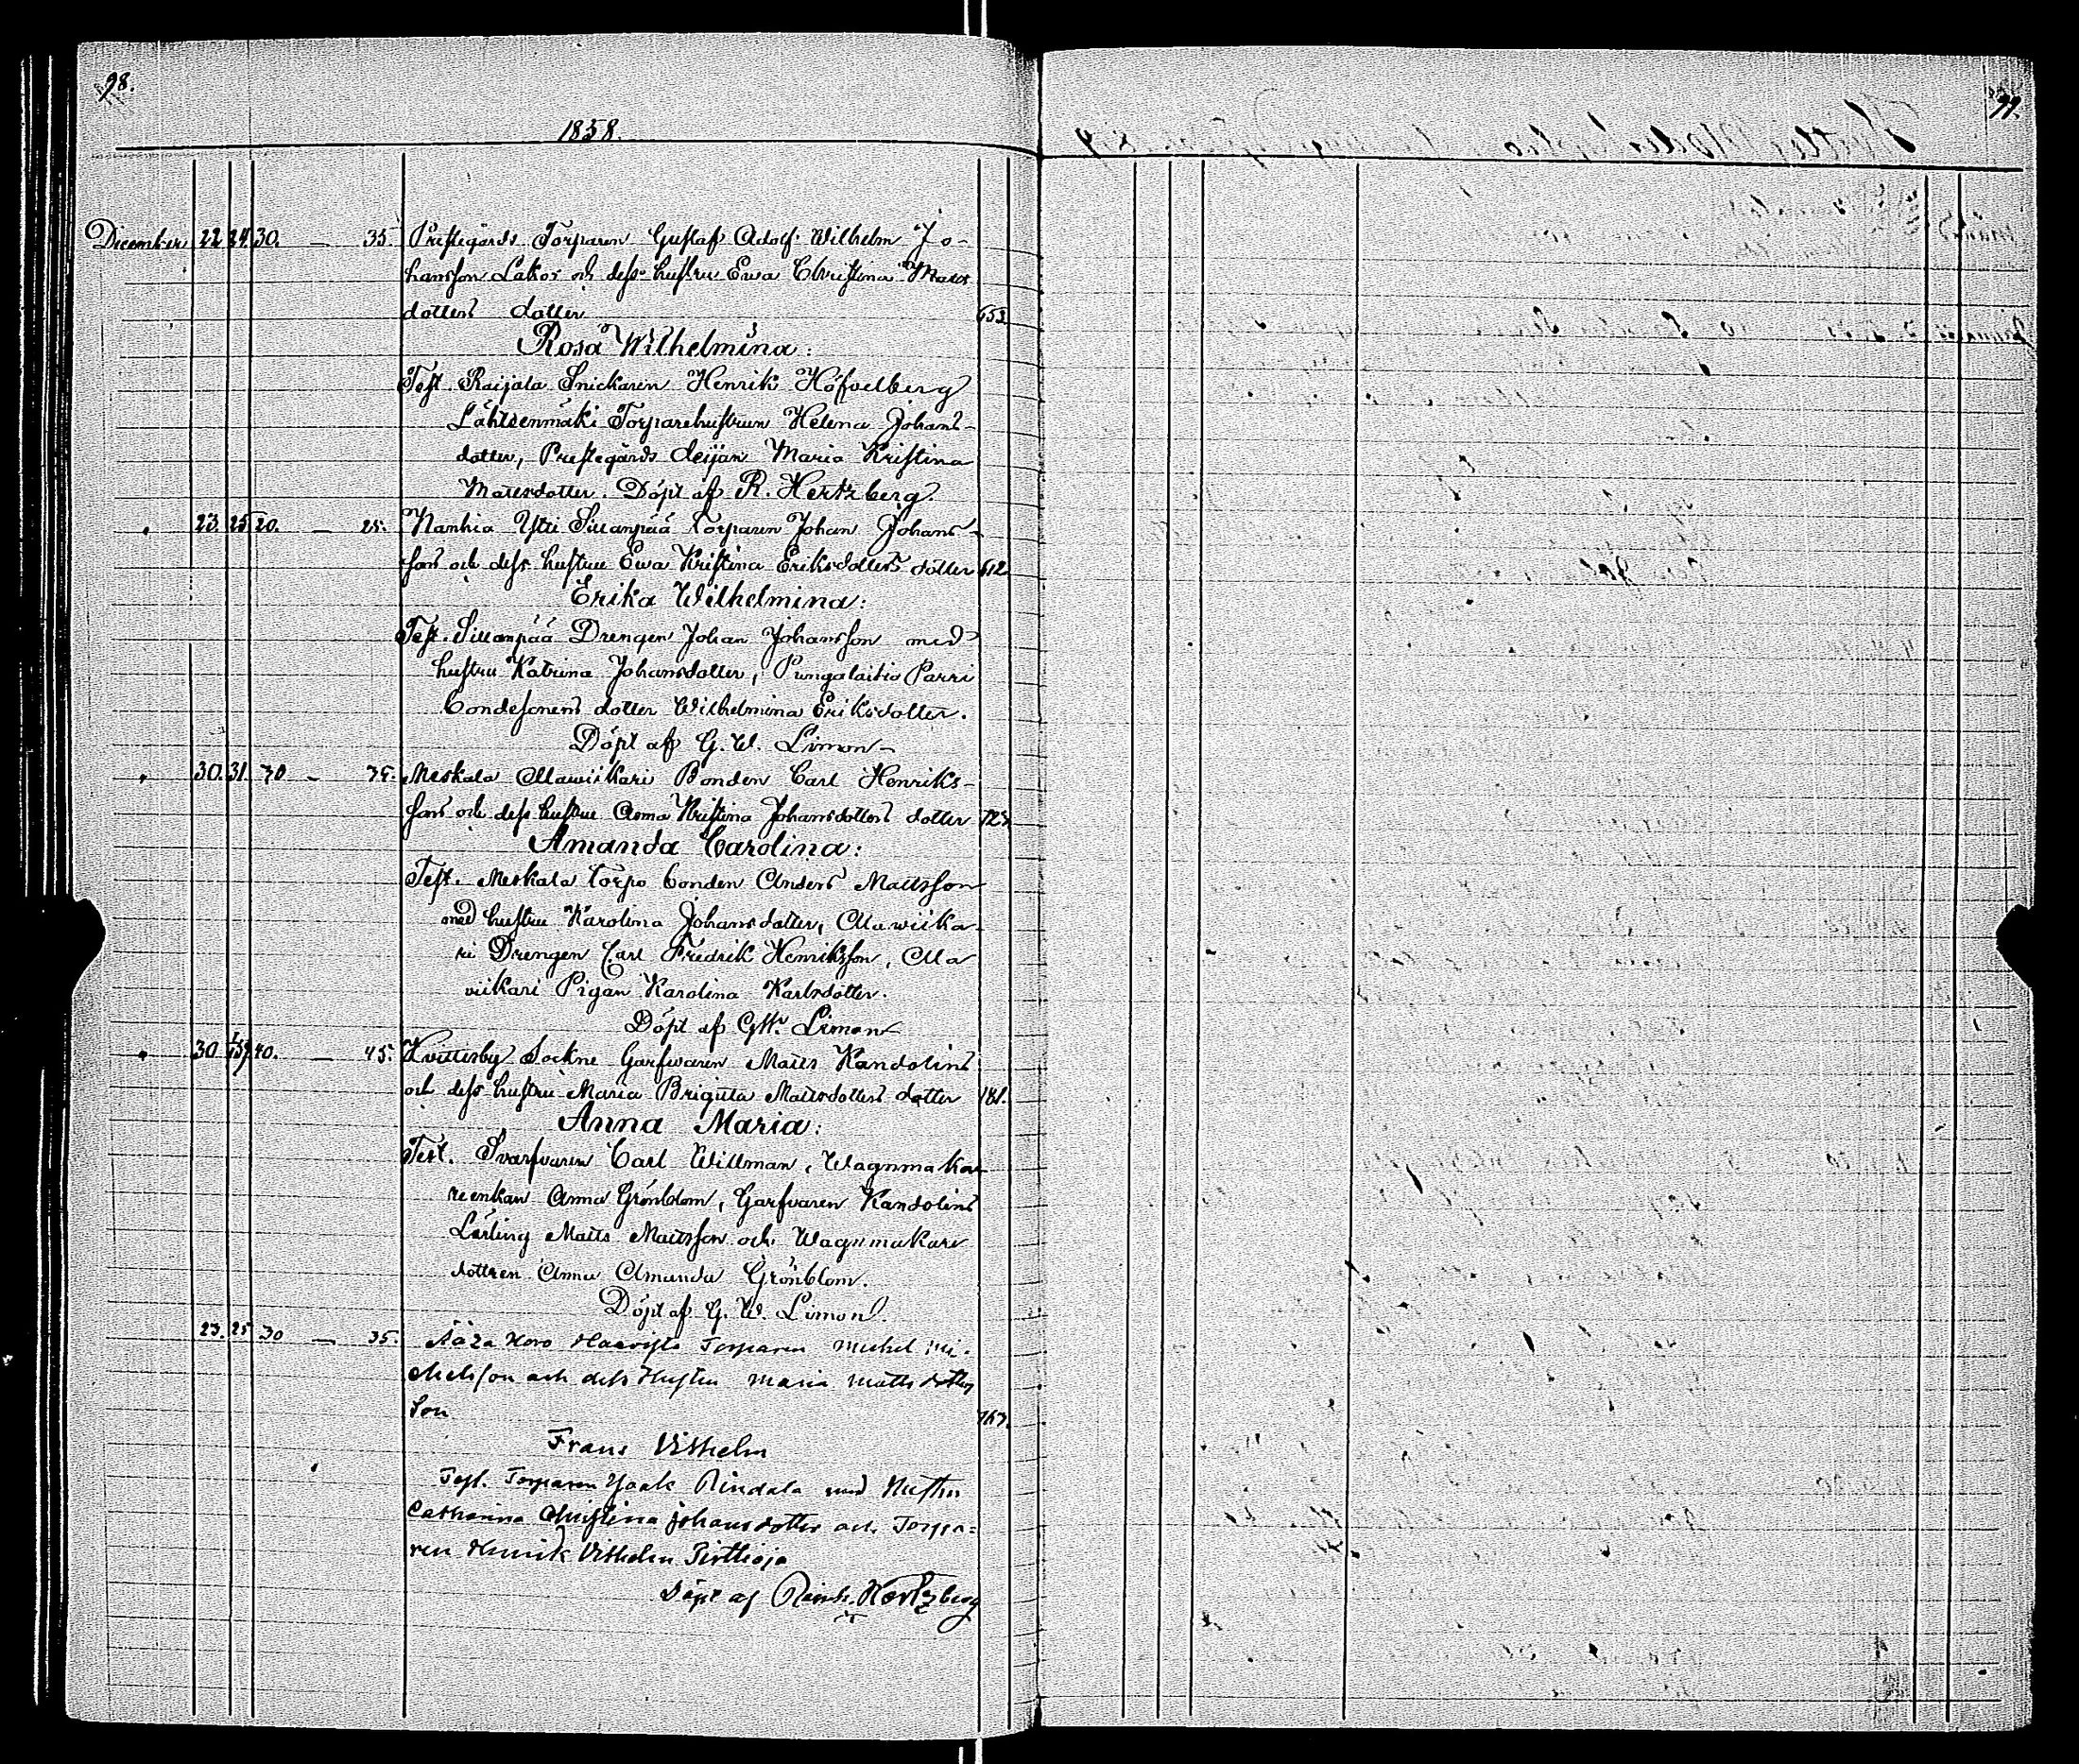 98.
99.
1858.
December 22. 24. 30. — 35. Prestegårds Torparen Gustaf Adolf Wilhelm Jo-
hansson Lakos och dess hustru Ewa Christina Mats
dotters dotter 653
Rosa Wilhelmina:
Test. Raijala Snickaren Henrik Höfvelberg
Lähteenmäki Torparehustrun Helena Johans-
dotter, Prestegårds deijan Maria Kristina
Matsdotter. Döpt af R. Hertzberg
23. 25 20. — 25. Nanhia Yli Sillanpää Torparen Johan Johans-
sons och dess hustru Ewa Kristina Eriksdotters dotter 612
Erika Wilhelmina:
Test. Sillanpää Drengen Johan Johansson med
hustru Katrina Johansdotter, Pungalaitio Parri
bondesonens dotter Wilhelmina Eriksdotter.
Döpt af G. W. Limon
30. 31. 30 — 35. Meskala Alawiikari Bonden Carl Henriks-
sons och dess hustru Anna Kristina Johansdotters dotter 725
Amanda Carolina:
Test. Meskala Torpo bonden Anders Mattsson
med hustru Karolina Johansdotter, Alawiika
ri Drengen Carl Fredrik Henriksson, Ala
viikari Pigan Karolina Karlsdotter.
Döpt af GW. Limon
30 40. — 45. Kvittesby Sockne Garfvaren Matts Kandolins
och dess hustru Maria Brigitta Mattsdotters dotter 181.
Anna Maria:
Test. Svarfvaren Carl Willman, Wagnmaka
reenkan Anna Grönblom, Garfvaren Kandolins
Lärling Matts Mattsson och Wagnmakare
dottren Anna Amanda Grönblom.
Döpt af G. W. Limon.
23. 25 30 — 35. Haavisto Torparen Michel Mi-
chelsson och dess Hustru Maria Matts dotters
Son 767.
Frans Vilhelm
Test. Torparen Isaak Rindala med Hustru
Catharina Christina Johansdotter och Torpa=
ren Henrik Vilhelm Pirttioja
Döpt af Reinh. Hertzberg